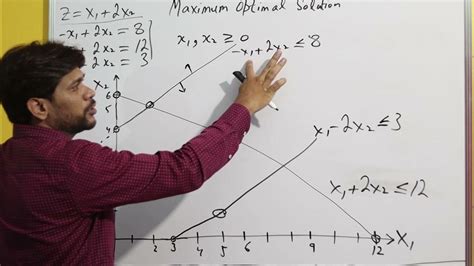 Maximum Optimal Solution
Z = x₁ + 2x₂
-x₁ + 2x₂ = 8
+ 2x₂ = 12
2x₂ = 3
x₁, x₂ ≥ 0
-x₁ + 2x₂ ≤ 8
x₂
6
4
x₁ - 2x₂ ≤ 3
x₁ + 2x₂ ≤ 12
3
5
7
9
12
x₁